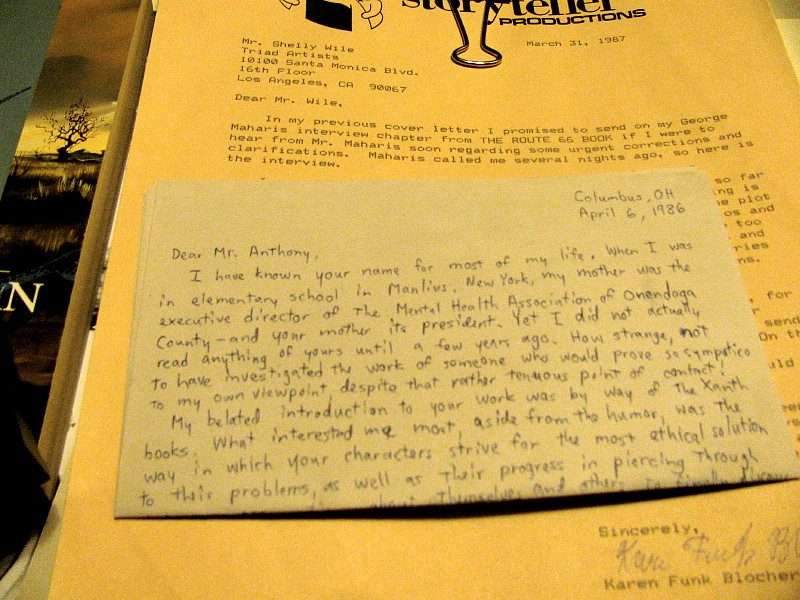 storyteller
PRODUCTIONS
March 31, 1987
Mr. Shelly Wile
Triad Artists
10100 Santa Monica Blvd.
16th Floor
Los Angeles, CA 90067
Dear Mr. Wile,
In my previous cover letter I promised to send on my George
Maharis interview chapter from THE ROUTE 66 BOOK if I were to
hear from Mr. Maharis soon regarding some urgent corrections and
clarifications. Maharis called me several nights ago, so here is
the interview.
so far
is
plot
and
too
and
for
send
On
Columbus, OH
April 6, 1986
Dear Mr. Anthony,
I have known your name for most of my life. When I was
in elementary school in Manlius, New York, my mother was the
executive director of The Mental Health Association of Onondaga
County - and your mother its president. Yet I did not actually
read anything of yours until a few years ago. How strange, not
to have investigated the work of someone who would prove so sympatico
to my own viewpoint despite that rather tenuous point of contact!
My belated introduction to your work was by way of The Xanth
books. What interested me most, aside from the humor, was the
way in which your characters strive for the most ethical solution
to their problems, as well as their progress in piercing through
about themselves and others to
Sincerely,
Karen Funk Blocher
IN